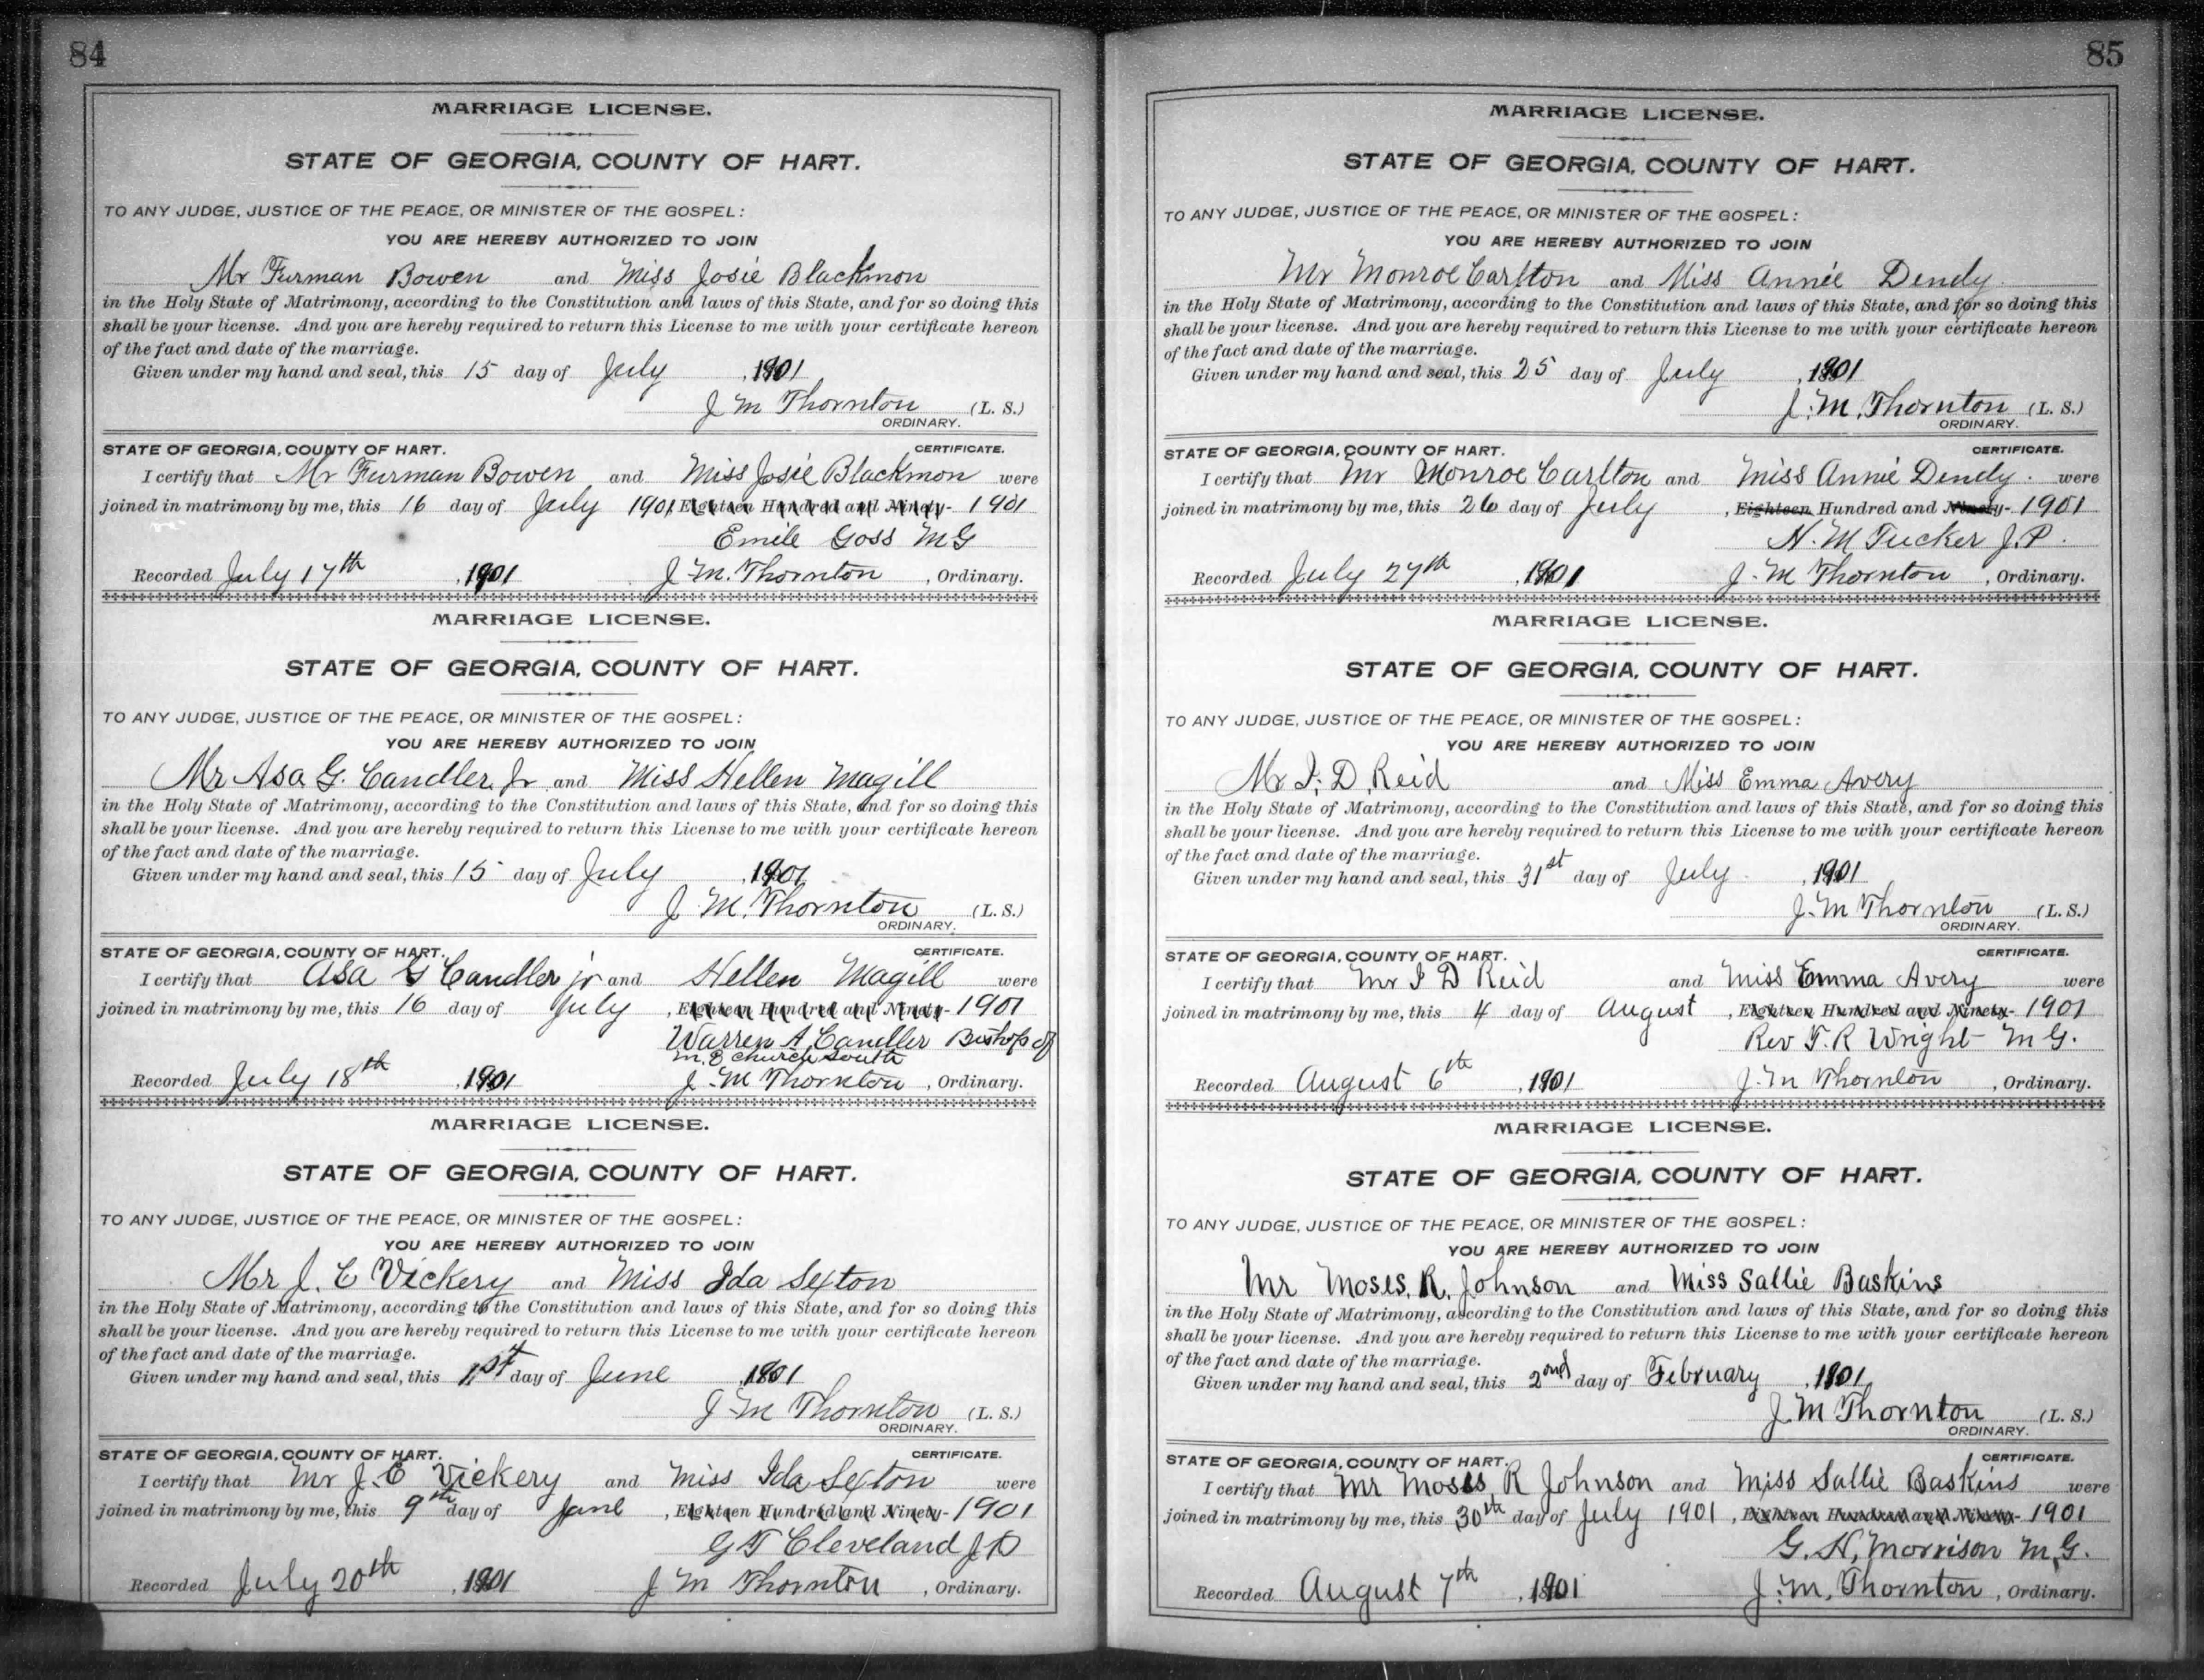 84
MARRIAGE LICENSE.
STATE OF GEORGIA, COUNTY OF HART.
TO ANY JUDGE, JUSTICE OF THE PEACE, OR MINISTER OF THE GOSPEL:
YOU ARE HEREBY AUTHORIZED TO JOIN
Mr Furman Bowen and Miss Josie Blackmon
in the Holy State of Matrimony, according to the Constitution and laws of this State, and for so doing this
shall be your license. And you are hereby required to return this License to me with your certificate hereon
of the fact and date of the marriage.
Given under my hand and seal, this 15 day of July , 1901
J M Thornton (L. S.)
ORDINARY.
STATE OF GEORGIA, COUNTY OF HART. CERTIFICATE.
I certify that Mr Furman Bowen and Miss Josie Blackmon were
joined in matrimony by me, this 16 day of July 1901, Eighteen Hundred and Ninety- 1901
Emile Goss MG
Recorded July 17th , 1901 J. M. Thornton , Ordinary.
MARRIAGE LICENSE.
STATE OF GEORGIA, COUNTY OF HART.
TO ANY JUDGE, JUSTICE OF THE PEACE, OR MINISTER OF THE GOSPEL:
YOU ARE HEREBY AUTHORIZED TO JOIN
Mr Asa G. Candler, Jr and Miss Hellen Magill
in the Holy State of Matrimony, according to the Constitution and laws of this State, and for so doing this
shall be your license. And you are hereby required to return this License to me with your certificate hereon
of the fact and date of the marriage.
Given under my hand and seal, this 15 day of July , 1901
J. M. Thornton (L. S.)
ORDINARY.
STATE OF GEORGIA, COUNTY OF HART. CERTIFICATE.
I certify that Asa G Candler jr and Hellen Magill were
joined in matrimony by me, this 16 day of July , Eighteen Hundred and Ninety- 1901
Warren A Candler Bishop of
M. E church South
Recorded July 18th , 1901 J. M Thornton , Ordinary.
MARRIAGE LICENSE.
STATE OF GEORGIA, COUNTY OF HART.
TO ANY JUDGE, JUSTICE OF THE PEACE, OR MINISTER OF THE GOSPEL:
YOU ARE HEREBY AUTHORIZED TO JOIN
Mr J. C Vickery and Miss Ida Sexton
in the Holy State of Matrimony, according to the Constitution and laws of this State, and for so doing this
shall be your license. And you are hereby required to return this License to me with your certificate hereon
of the fact and date of the marriage.
Given under my hand and seal, this 1st day of June , 1901
J. M Thornton (L. S.)
ORDINARY.
STATE OF GEORGIA, COUNTY OF HART. CERTIFICATE.
I certify that Mr J. C Vickery and Miss Ida Sexton were
joined in matrimony by me, this 9th day of June , Eighteen Hundred and Ninety- 1901
G T Cleveland J P
Recorded July 20th , 1901 J M Thornton , Ordinary.
85
MARRIAGE LICENSE.
STATE OF GEORGIA, COUNTY OF HART.
TO ANY JUDGE, JUSTICE OF THE PEACE, OR MINISTER OF THE GOSPEL:
YOU ARE HEREBY AUTHORIZED TO JOIN
Mr Monroe Carlton and Miss Annie Dendy.
in the Holy State of Matrimony, according to the Constitution and laws of this State, and for so doing this
shall be your license. And you are hereby required to return this License to me with your certificate hereon
of the fact and date of the marriage.
Given under my hand and seal, this 25 day of July , 1901
J. M. Thornton (L. S.)
ORDINARY.
STATE OF GEORGIA, COUNTY OF HART. CERTIFICATE.
I certify that Mr Monroe Carlton and Miss Annie Dendy. were
joined in matrimony by me, this 26 day of July , Eighteen Hundred and Ninety- 1901
N. M Tucker J. P.
Recorded July 27th , 1901 J. M Thornton , Ordinary.
MARRIAGE LICENSE.
STATE OF GEORGIA, COUNTY OF HART.
TO ANY JUDGE, JUSTICE OF THE PEACE, OR MINISTER OF THE GOSPEL:
YOU ARE HEREBY AUTHORIZED TO JOIN
Mr I. D. Reid and Miss Emma Avery
in the Holy State of Matrimony, according to the Constitution and laws of this State, and for so doing this
shall be your license. And you are hereby required to return this License to me with your certificate hereon
of the fact and date of the marriage.
Given under my hand and seal, this 31st day of July , 1901
J. M Thornton (L. S.)
ORDINARY.
STATE OF GEORGIA, COUNTY OF HART. CERTIFICATE.
I certify that Mr I D Reid and Miss Emma Avery were
joined in matrimony by me, this 4 day of August , Eighteen Hundred and Ninety- 1901
Rev F. R Wright M G.
Recorded August 6th , 1901 J. M Thornton , Ordinary.
MARRIAGE LICENSE.
STATE OF GEORGIA, COUNTY OF HART.
TO ANY JUDGE, JUSTICE OF THE PEACE, OR MINISTER OF THE GOSPEL:
YOU ARE HEREBY AUTHORIZED TO JOIN
Mr Moses. R. Johnson and Miss Sallie Baskins
in the Holy State of Matrimony, according to the Constitution and laws of this State, and for so doing this
shall be your license. And you are hereby required to return this License to me with your certificate hereon
of the fact and date of the marriage.
Given under my hand and seal, this 2nd day of February , 1901
J. M Thornton (L. S.)
ORDINARY.
STATE OF GEORGIA, COUNTY OF HART. CERTIFICATE.
I certify that Mr Moses R Johnson and Miss Sallie Baskins were
joined in matrimony by me, this 30th day of July 1901 , Eighteen Hundred and Ninety- 1901
G. H. Morrison M. G.
Recorded August 7th , 1901 J. M. Thornton , Ordinary.